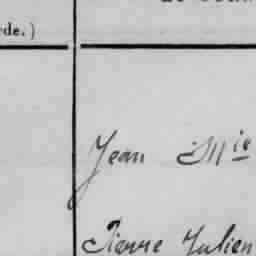 rde.)
Jean Mie
Pierre Julien